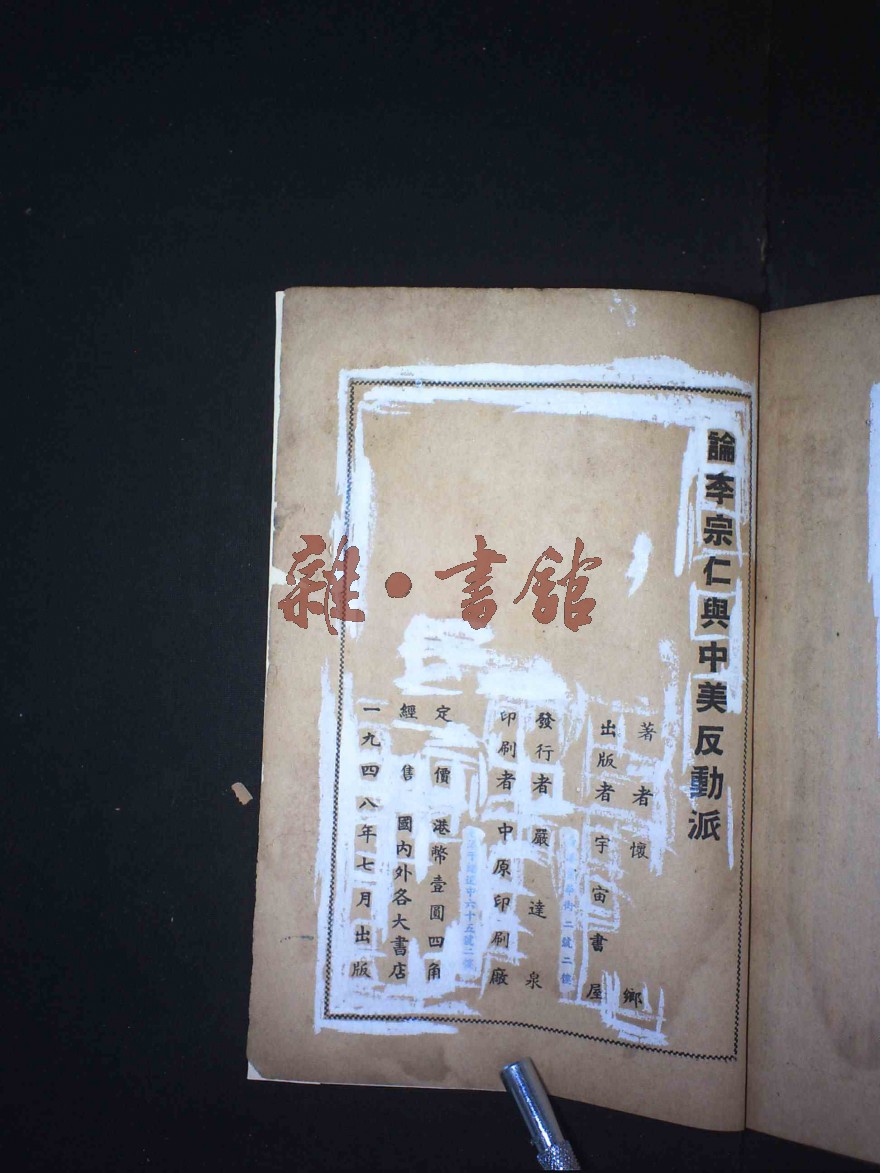 論李宗仁與中美反動派
著者懷鄉
出版者宇宙書屋
街二號二樓
發行者嚴達泉
印刷者中原印刷廠
中六十五號二樓
定價港幣壹圓四角
經售國內外各大書店
一九四八年七月出版
雜·書館